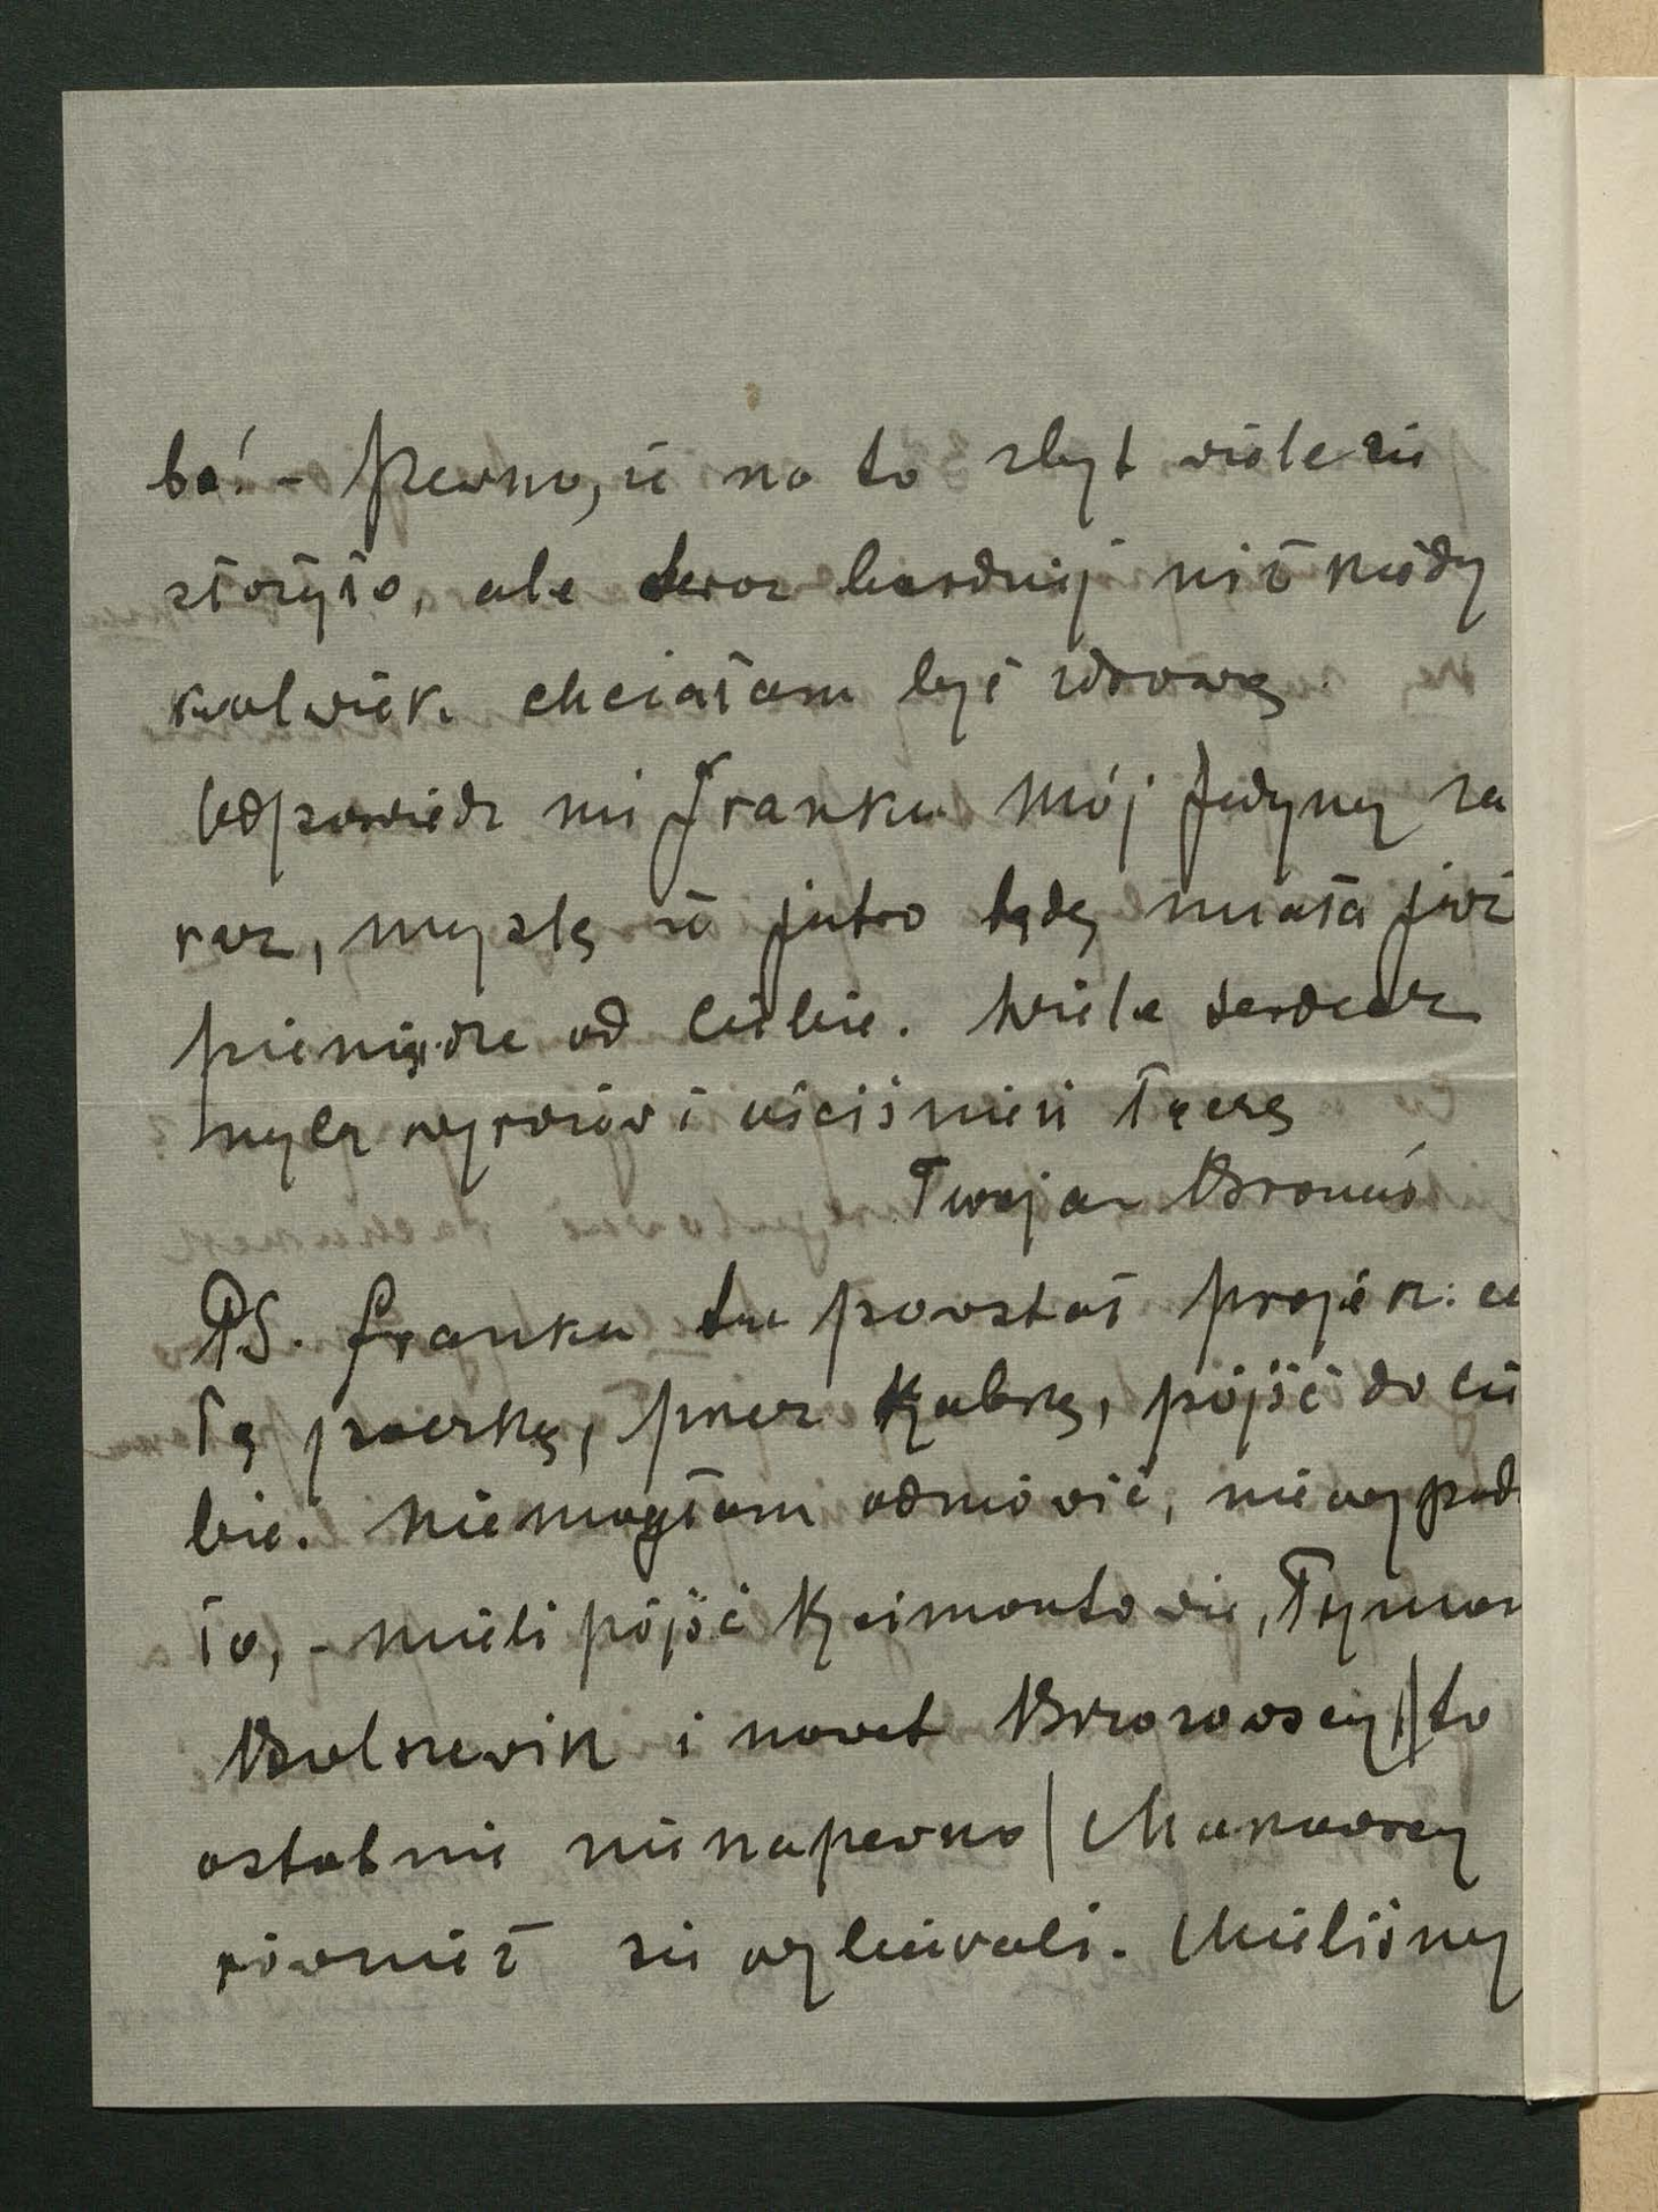 ba! - Pewno, że na to zbyt wiele się
złożyło, ale teraz bardziej niż kiedy
kolwiek chciałam być zdrową.
Odpowiedz mi Franku mój Jedyny za
raz, myślę że jutro będę miała już
pieniądze od Ciebie. Wiele serdecz
nych wyrazów i uściśnień łączę
Twoja Bronuś
PS. Franku tu powstał projekt: ca
łą paczką, przez Żabkę, pójść do Cie
bie. Nie mogłam odmówić, nie wypada
ło, - mieli pójść Rejmontowie, Tymon
Bolszewik i nawet Brzozowscy // to
ostatnie nienapewno / Makowscy
również się wybierali. Mieliśmy